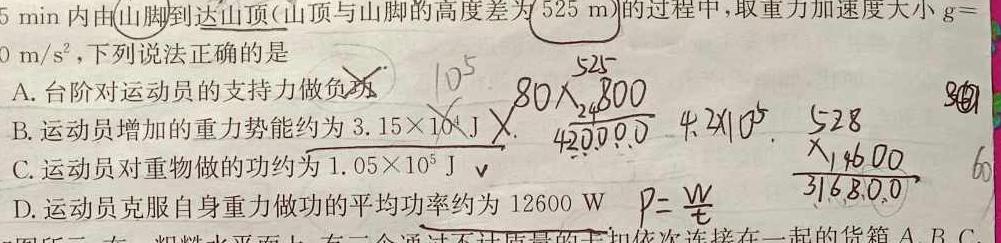 5 min 内由山脚到达山顶(山顶与山脚的高度差为 525 m)的过程中,取重力加速度大小 g=
0 m/s²,下列说法正确的是
A. 台阶对运动员的支持力做负功
10⁵
525
80×800
24
420000
4.2×10⁵.
B. 运动员增加的重力势能约为 3.15×10⁴ J ×.
528
×,600
316800
60
C. 运动员对重物做的功约为 1.05×10⁵ J ✓
D. 运动员克服自身重力做功的平均功率约为 12600 W
P=W/t
一起的货箱 A、B、C,